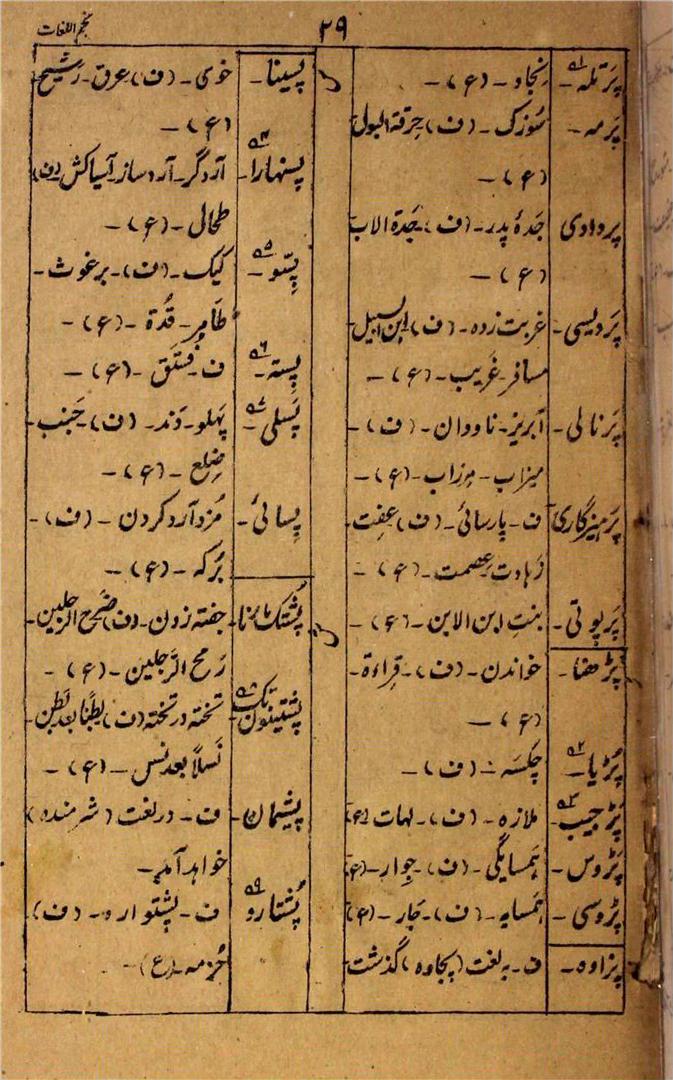 نجم اللغات
۲۹
پَرتلہ۵۱۔ نِجاد۔ (ع)۔
پَرمہ۔ سُوزک۔ (ف)۔ حِرقۃ البول
(ع)۔
پردادی جَدۂ پدر۔ (ف)۔ جَدۃ الاب
(ع)۔
پَردیسی۔ غربت زدہ۔ (ف) ابن السبیل
مسافر۔ غَریب۔ (ع)۔
پَرنالی۔ آبریز۔ ناودان۔ (ف)۔
میزاب۔ مِرزاب۔ (ع)۔
پَرہیزگاری ف۔ پارسائی۔ (ف) عِفت
زہادت۔ عِصمت۔ (ع)۔
پَرپوتی۔ بنتِ ابن الابن۔ (ع)۔
پڑھنا۔ خواندن۔ (ف)۔ قِراءۃ۔
(ع)۔
پُڑیا۵۲۔ چکسَہ۔ (ف)۔
پَڑجیب۵۳۔ ملازہ۔ (ف)۔ لہات (ع)
پَڑوس۔ ہَمسایگی۔ (ف)۔ جِوار۔ (ع)
پڑوسی۔ ہَمسایہ۔ (ف)۔ جَار۔ (ع)
پزاوہ۔ ف۔ بہ لغت (پجاوہ) گذشت
پسینا۔ خوی۔ (ف) عرق۔ رَشیح
(ع)۔
پسنہارا۵۴۔ آردگر۔ آردساز۔ آسیاکش (ف)
طحال۔ (ع)۔
پِسّو۵۵۔ کیک۔ (ف)۔ برغوث۔
طَامِر۔ قُدّۃ۔ (ع)۔
پِستہ۵۶۔ ف۔ فستق۔ (ع)۔
پَسلی۵۷۔ پہلو۔ دَند۔ (ف)۔ جَنب۔
ضِلع۔ (ع)۔
پِسائی۔ مُزد آرد کردن۔ (ف)۔
بُرکہ۔ (ع)۔
پُشتک مارنا۔ جفتہ زدن۔ (ف) ضَرح الرجلین۔
رَمح الرَّجلین۔ (ع)۔
پشتینون تک۵۸۔ تختہ در تختہ (ف) بطنًا بعد بَطن۔
نَسلاً بعد نسل۔ (ع)۔
پشیمان۔ ف۔ در لغت (شرمندہ)
خواہد آمد۔
پُشتارہ۵۹ ف۔ پشتوارہ۔ (ف)۔
حُزمہ۔ (ع)۔